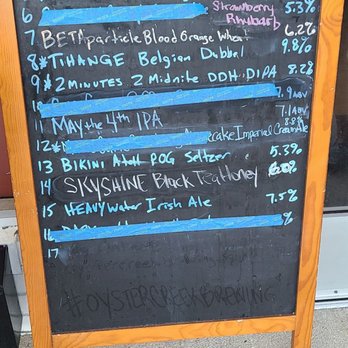 6 Strawberry 5.3%
Rhubarb
7 BETA particle Blood Orange Wheat 6.2%
8 * TIHANGE Belgian Dubbel 9.8%
9 * 2 MINUTES 2 Midnite DDH DIPA 8.2%
10 7.9 ABV
11 MAY the 4th IPA 7.1 ABV
12 cake Imperial Cream Ale 8.8%
13 BIKINI Atoll POG Seltzer 5.3%
14 SKYSHINE Black Tea Honey
15 HEAVY Water Irish Ale 7.5%
16 %
17
#OYSTERCREEKBREWING